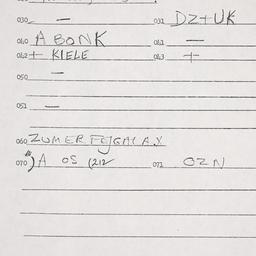 030 – 031 DZ+UK
040 A BONK 041 –
042 + KIELE 043 +
050 –
051 –
060 ZUMER
070 A OS (212 071 OZN